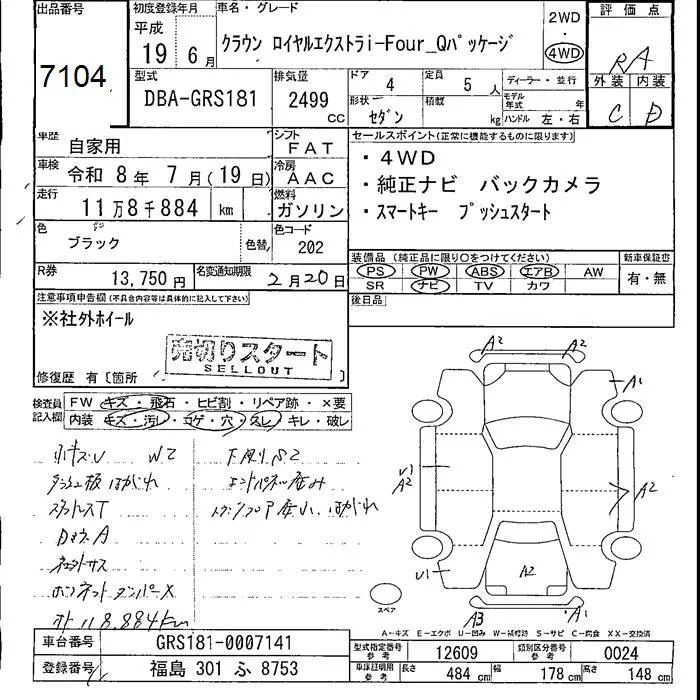 出品番号
7104
初度登録年月
平成
19 6月
車名・グレード
クラウン ロイヤルエクストラi-Four_Qパッケージ
2WD
4WD
評価点
RA
外装 内装
C D
型式
DBA-GRS181
排気量
2499
cc
ドア 4
形状 セダン
定員 5 人
積載 kg
ディーラー・並行
モデル年式 年
ハンドル 左・右
車歴
自家用
シフト
FAT
車検 令和 8年 7月(19日)
冷房
AAC
走行
11万8千884 km
燃料
ガソリン
色
ブラック
色替
色コード
202
R券
13,750円
名変通知期限
2月20日
セールスポイント(正常に機能するものに限ります)
・4WD
・純正ナビ バックカメラ
・スマートキー プッシュスタート
装備品(純正品に限り○をつけてください)
新車保証書
PS PW ABS エアB AW
SR ナビ TV カワ
有・無
後日品
注意事項申告欄(不具合内容等は具体的に記入して下さい)
※社外ホイール
売切りスタート
SELLOUT
修復歴 有〔箇所
検査員記入欄
FW キズ・飛石・ヒビ割・リペア跡・×要
内装 キズ・汚レ・コゲ・穴・スレ・キレ・破レ
W2
下廻りS2
エンドパネル歪み
ボンネットダンパーX
118,884km
A2
A2
A1
U1
A2
A2
U1
A2
A3
A1
スペア
A-キズ E-エクボ U-凹み W-補修跡 S-サビ C-腐食 XX-交換済
車台番号
GRS181-0007141
登録番号
福島 301 ふ 8753
型式指定番号
参考
12609
類別区分番号
参考
0024
車庫証明用
参考
長さ 484 cm
幅 178 cm
高さ 148 cm